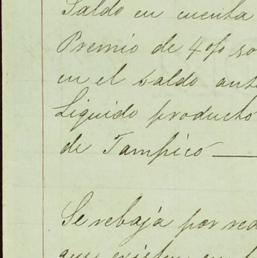 Saldo en cuenta
Premio de 4 o/o so
en el saldo ant
Liquido producto
de Tampico
Se rebaja por
que existen en